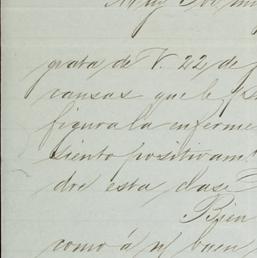 Muy Sor. mi
grata de V. 22 de
causas que le
figura la enferme
siento positivamt
dre esta clase
Bien
como á un buen